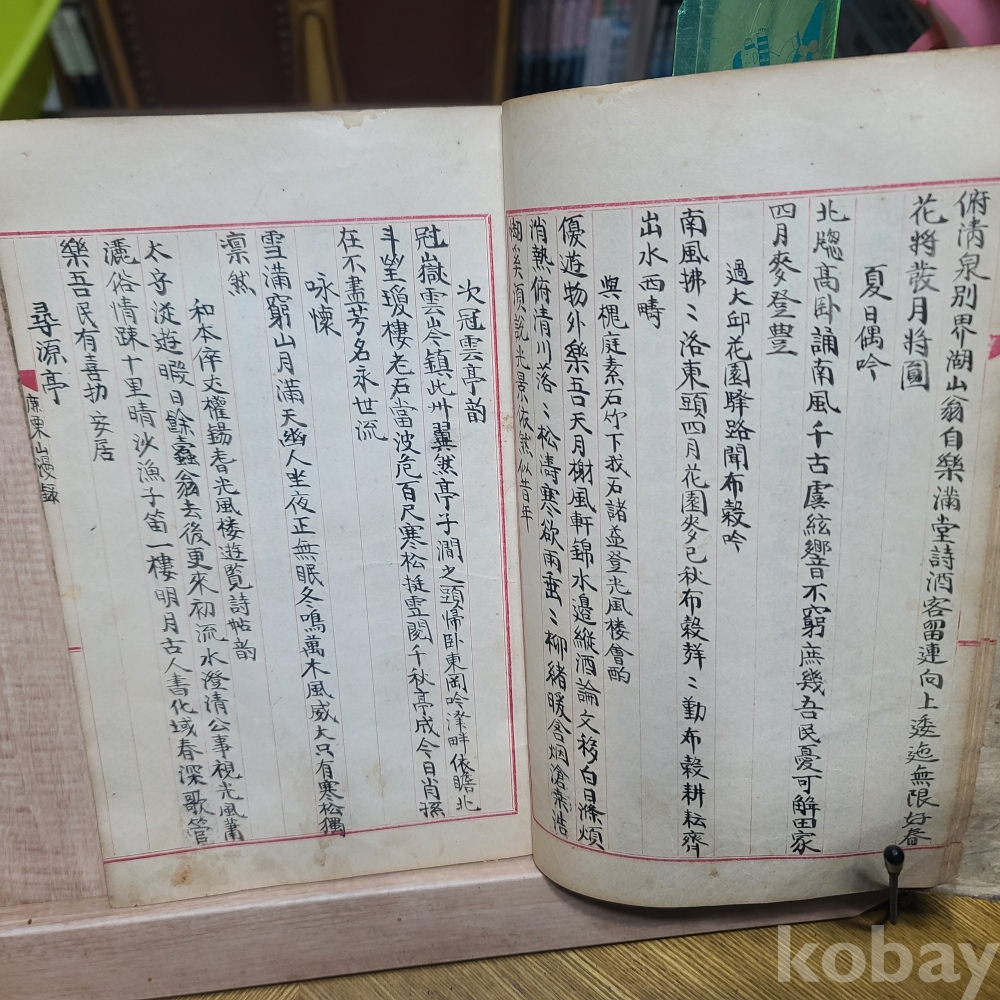 俯淸泉別界湖山翁自樂滿堂詩酒客留連向上逶迤無限好春
花將發月將圓
夏日偶吟
北牕高卧誦南風千古虞絃響不窮庶幾吾民憂可解田家
四月麥登豊
過大邱花園驛路聞布穀吟
南風拂〻洛東頭四月花園麥已秋布穀聲〻勤布穀耕耘齊
出水西疇
與槐庭素石竹下我石諸益登光風楼會酌
優遊物外樂吾天月榭風軒錦水邊縱酒論文移白日滌煩
消熱俯淸川落〻松濤寒欲雨垂〻柳緖暖含烟滄桑浩
湖溪須說光景依然似昔年
次冠雲亭韵
冠山嶽雲岑鎭此州翼然亭子澗之頭歸卧東岡吟澤畔依瞻北
斗望瓊樓老石當波危百尺寒松挺雪閱千秋亭成今日肖孫
在不盡芳名永世流
咏懷
雪滿窮山月滿天幽人坐夜正無眠冬鳴萬木風威大只有寒松獨
凛然
和本倅丈權錫春光風楼遊覧詩帖韵
太守從遊暇日餘蠹翁去後更來初流水澄清公事視光風蕭
灑俗情踈十里晴沙漁子笛一樓明月古人書化域春深歌管
樂吾民有喜扐安居
尋源亭
山漫録
kobay